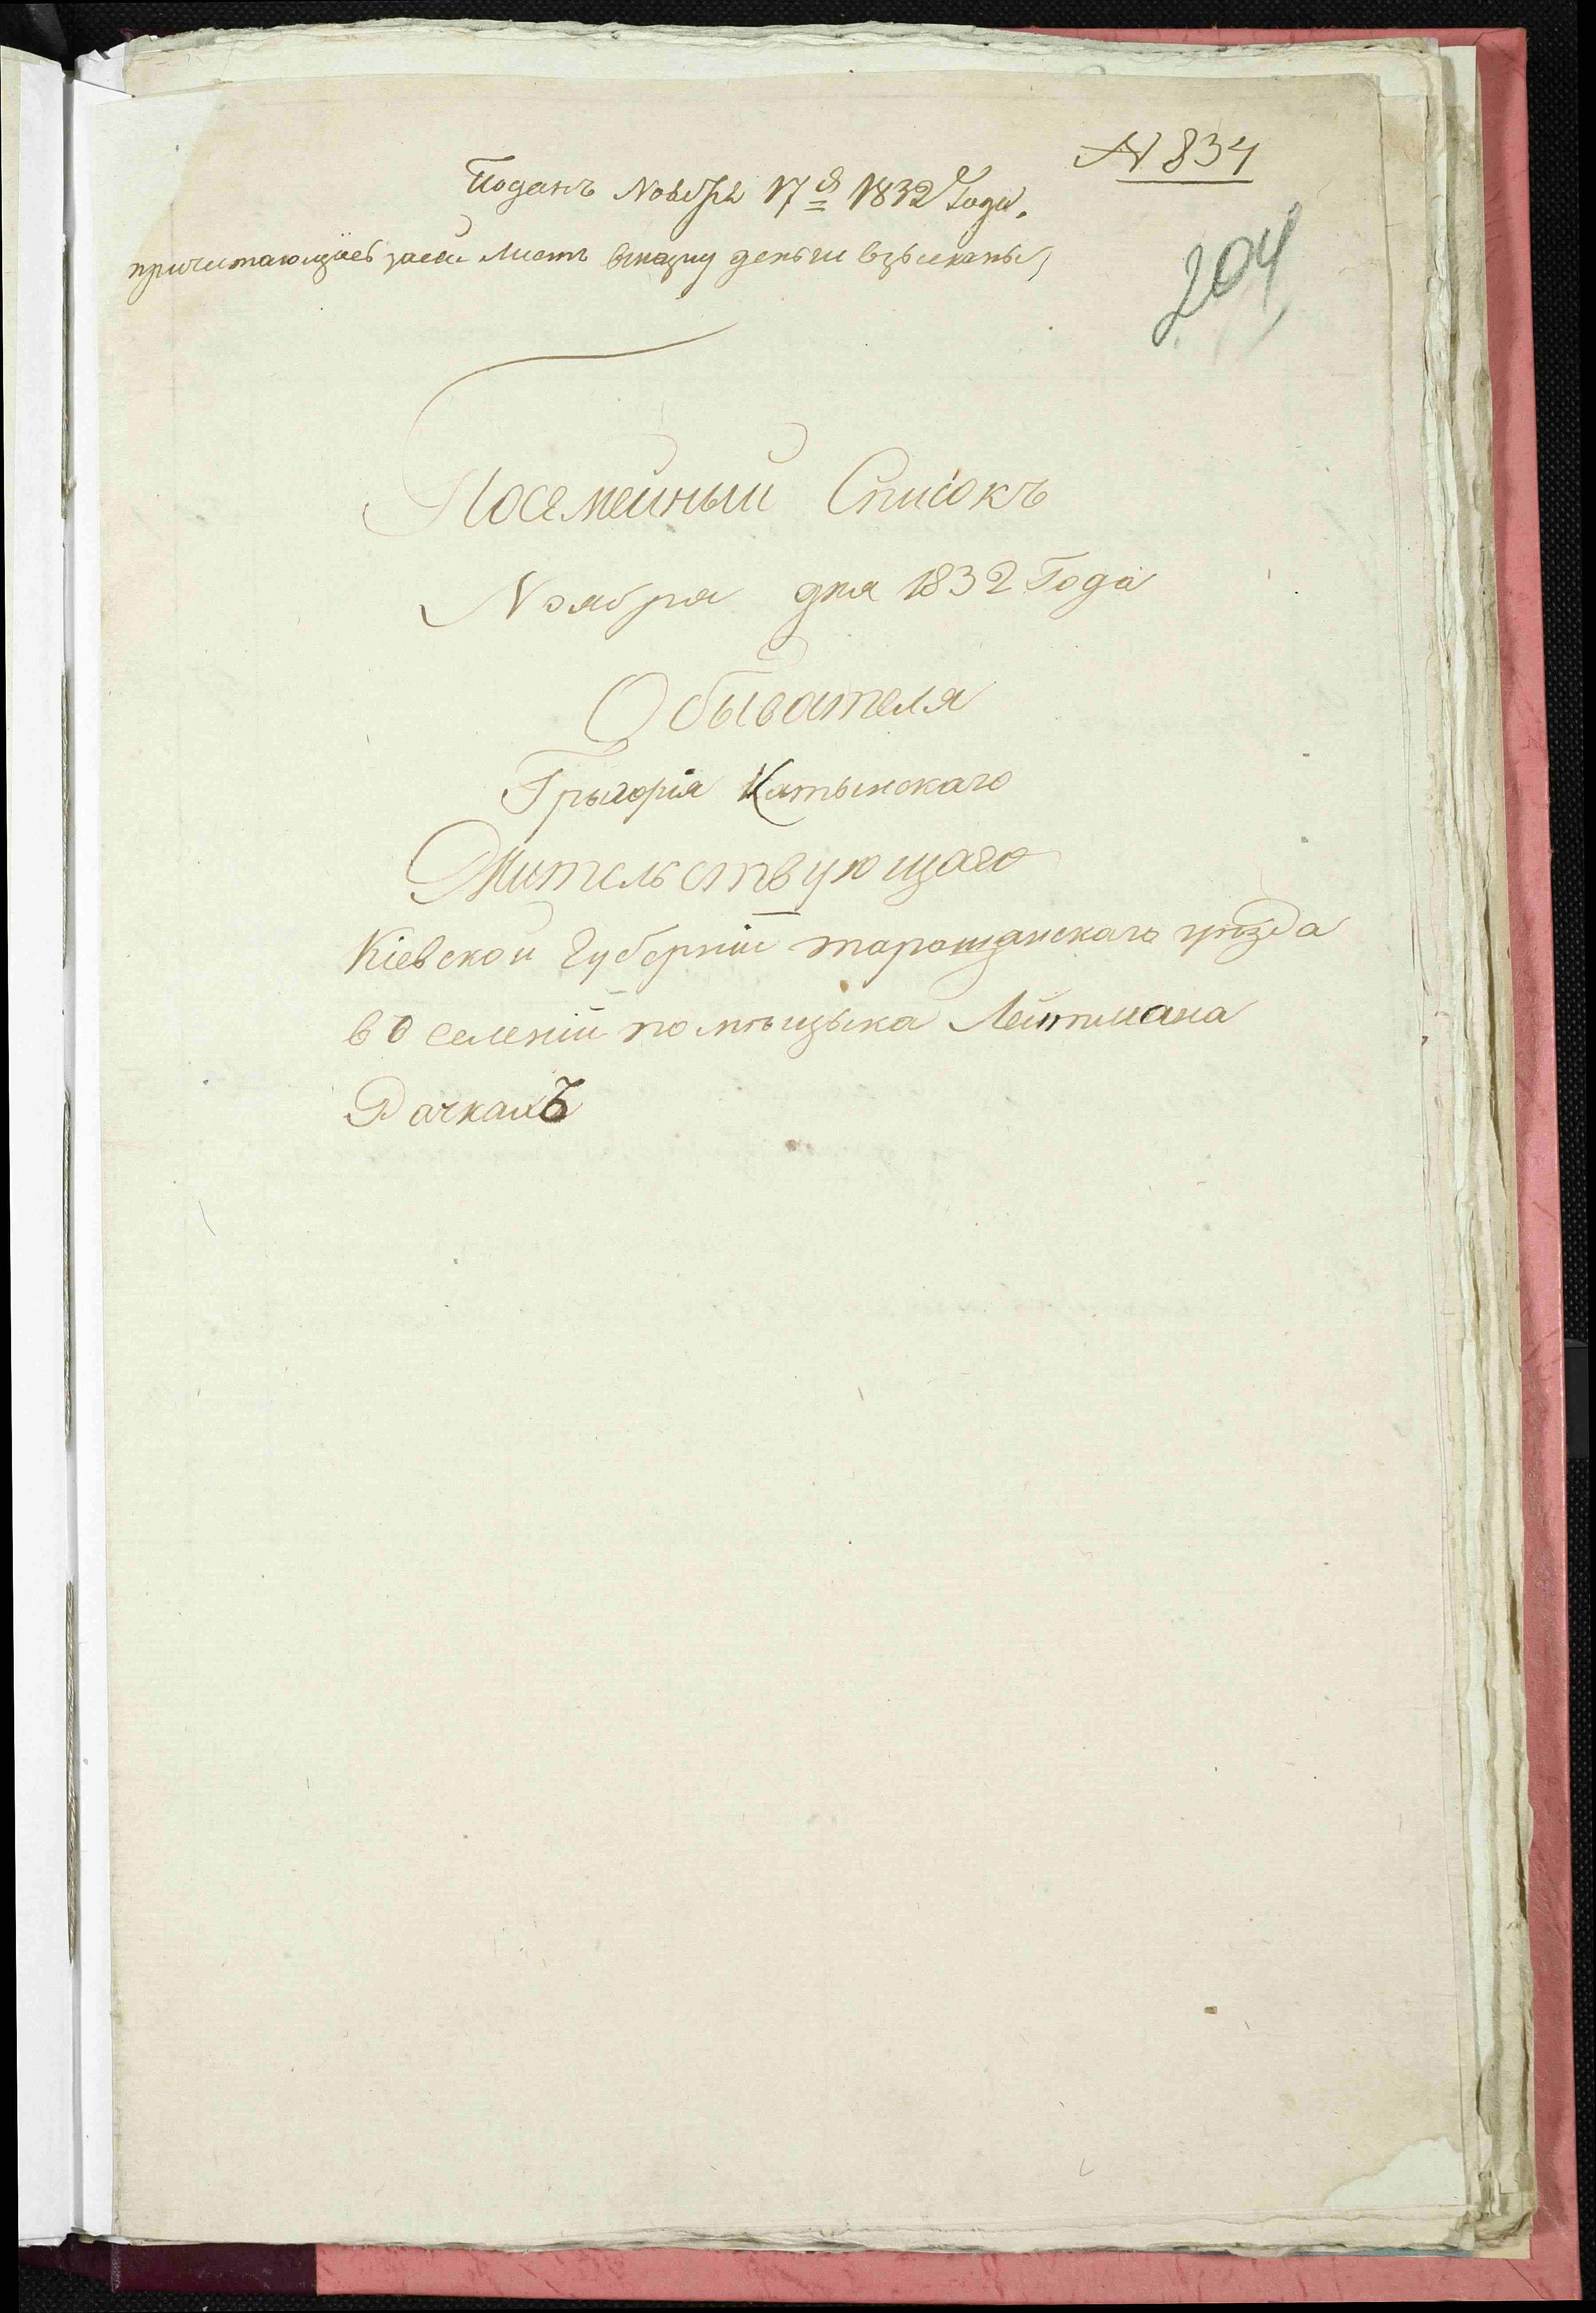 № 834
Поданъ Ноября 17 д 1832 Года.
204
причитающіесь засей Листъ вказну деньги взысканы
Посемейный Списокъ
Ноября дня 1832 Года
Обывателя
Грыгорія Катынскаго
Жительствующаго
Кіевской Губерніи таращанскаго уѣзда
во селеніи помѣщыка Лейтмана
Дачкахъ